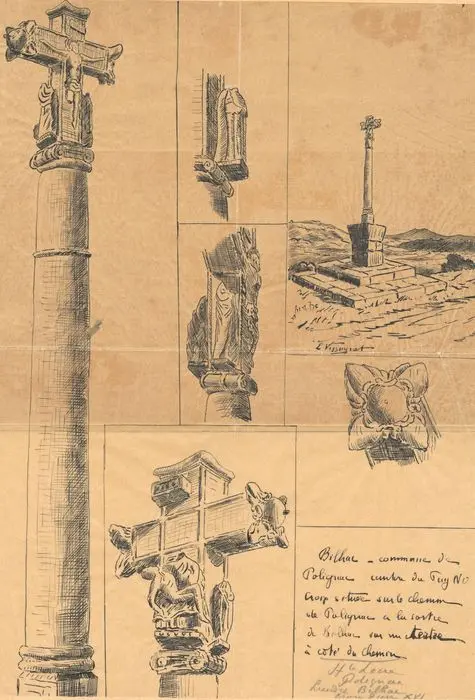 L Vissaguet
Bilhac - commune de
Polignac canton du Puy NO
Croix située sur le chemin
de Polignac a la sortie
de Bilhac sur un tertre
à coté du chemin
Hte Loire
Polignac
Bilhac
XVI